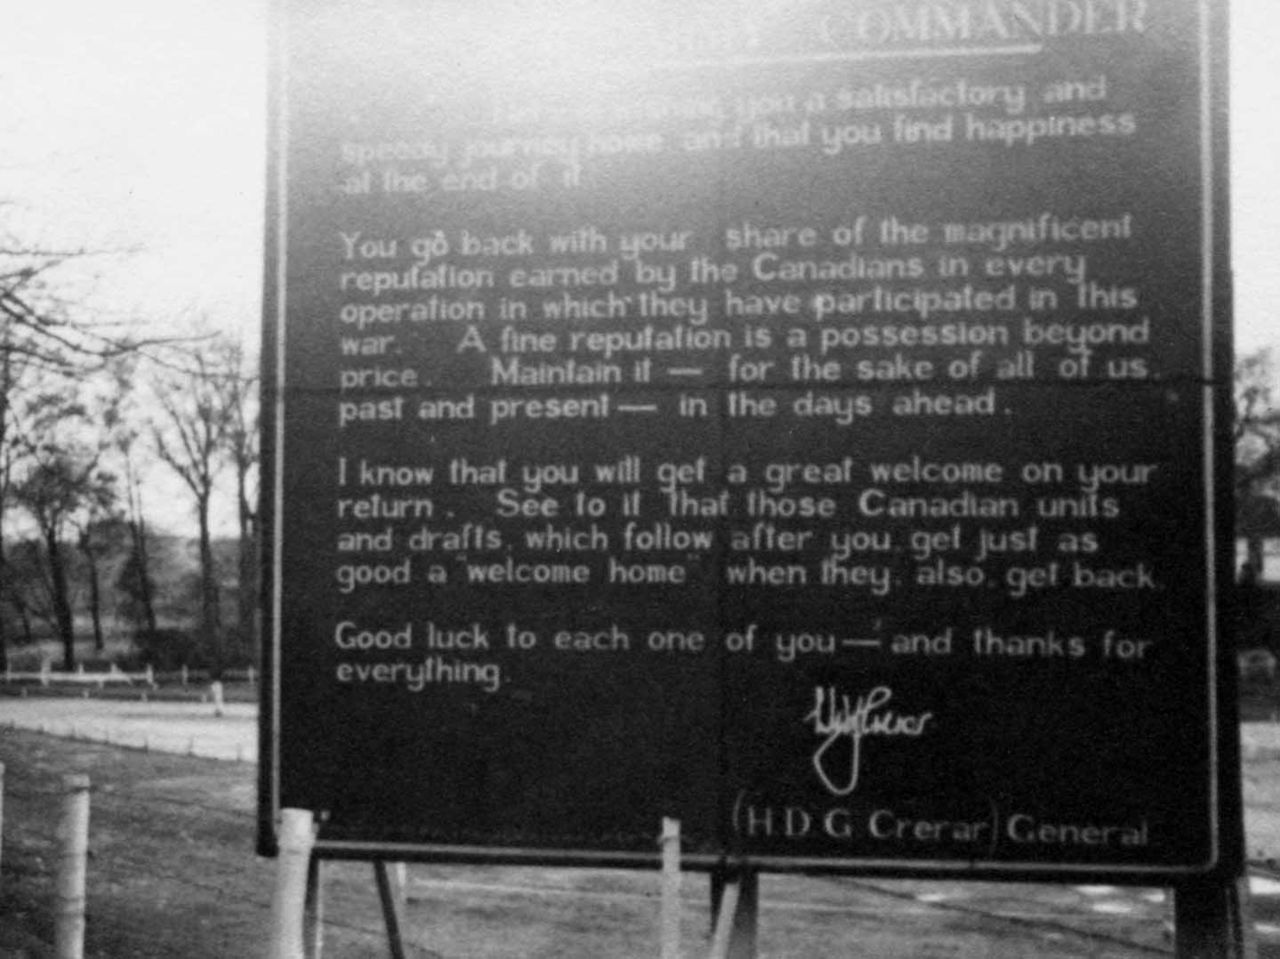 COMMANDER
you a satisfactory and
speedy journey home and that you find happiness
at the end of it.
You go back with your share of the magnificent
reputation earned by the Canadians in every
operation in which they have participated in this
war. A fine reputation is a possession beyond
price. Maintain it — for the sake of all of us,
past and present — in the days ahead.
I know that you will get a great welcome on your
return. See to it that those Canadian units
and drafts, which follow after you, get just as
good a "welcome home" when they, also, get back
Good luck to each one of you — and thanks for
everything.
(H D G Crerar) General